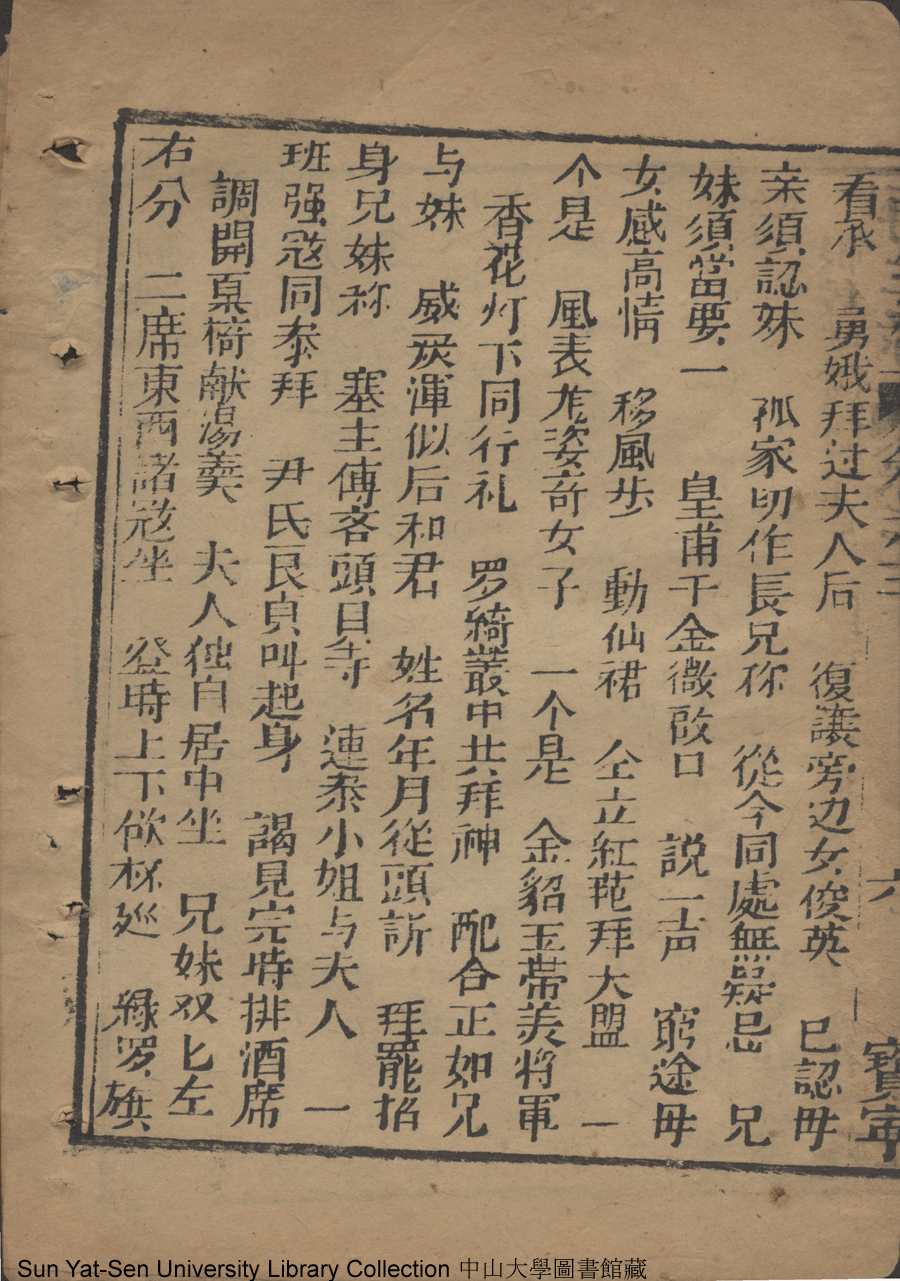 看承 勇娥拜过夫人后 復讓旁边女俊英 已認母
亲须認妹 孤家切作長兄称 從今同處無疑忌 兄
妹須當要一 皇甫千金微啟口 説一声 窮途母
女感高情 移風步 動仙裙 仝立紅苑拜大盟 一
个是 風表尨姿奇女子 一个是 金貂玉带美将軍
香花灯下同行礼 罗綺叢中共拜神 配合正如兄
与妹 威炭渾似后和君 姓名年月從頭訴 拜罷招
身兄妹称 塞主傳客頭目等 連泰小姐与夫人 一
班强寇同泰拜 尹氏艮貞叫起身 謁見完時排酒席
調開桌椅献湯羹 夫人独自居中坐 兄妹双匕左
右分 二席東西諸寇坐 登時上下飲杯巡 綠罗旗
六
寶寧
Sun Yat-Sen University Library Collection 中山大學圖書館藏